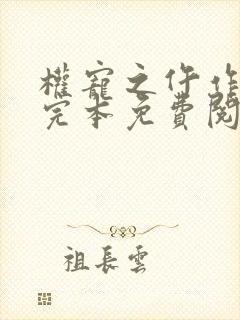 權寵之仵作
完本免費閱
祖長雲